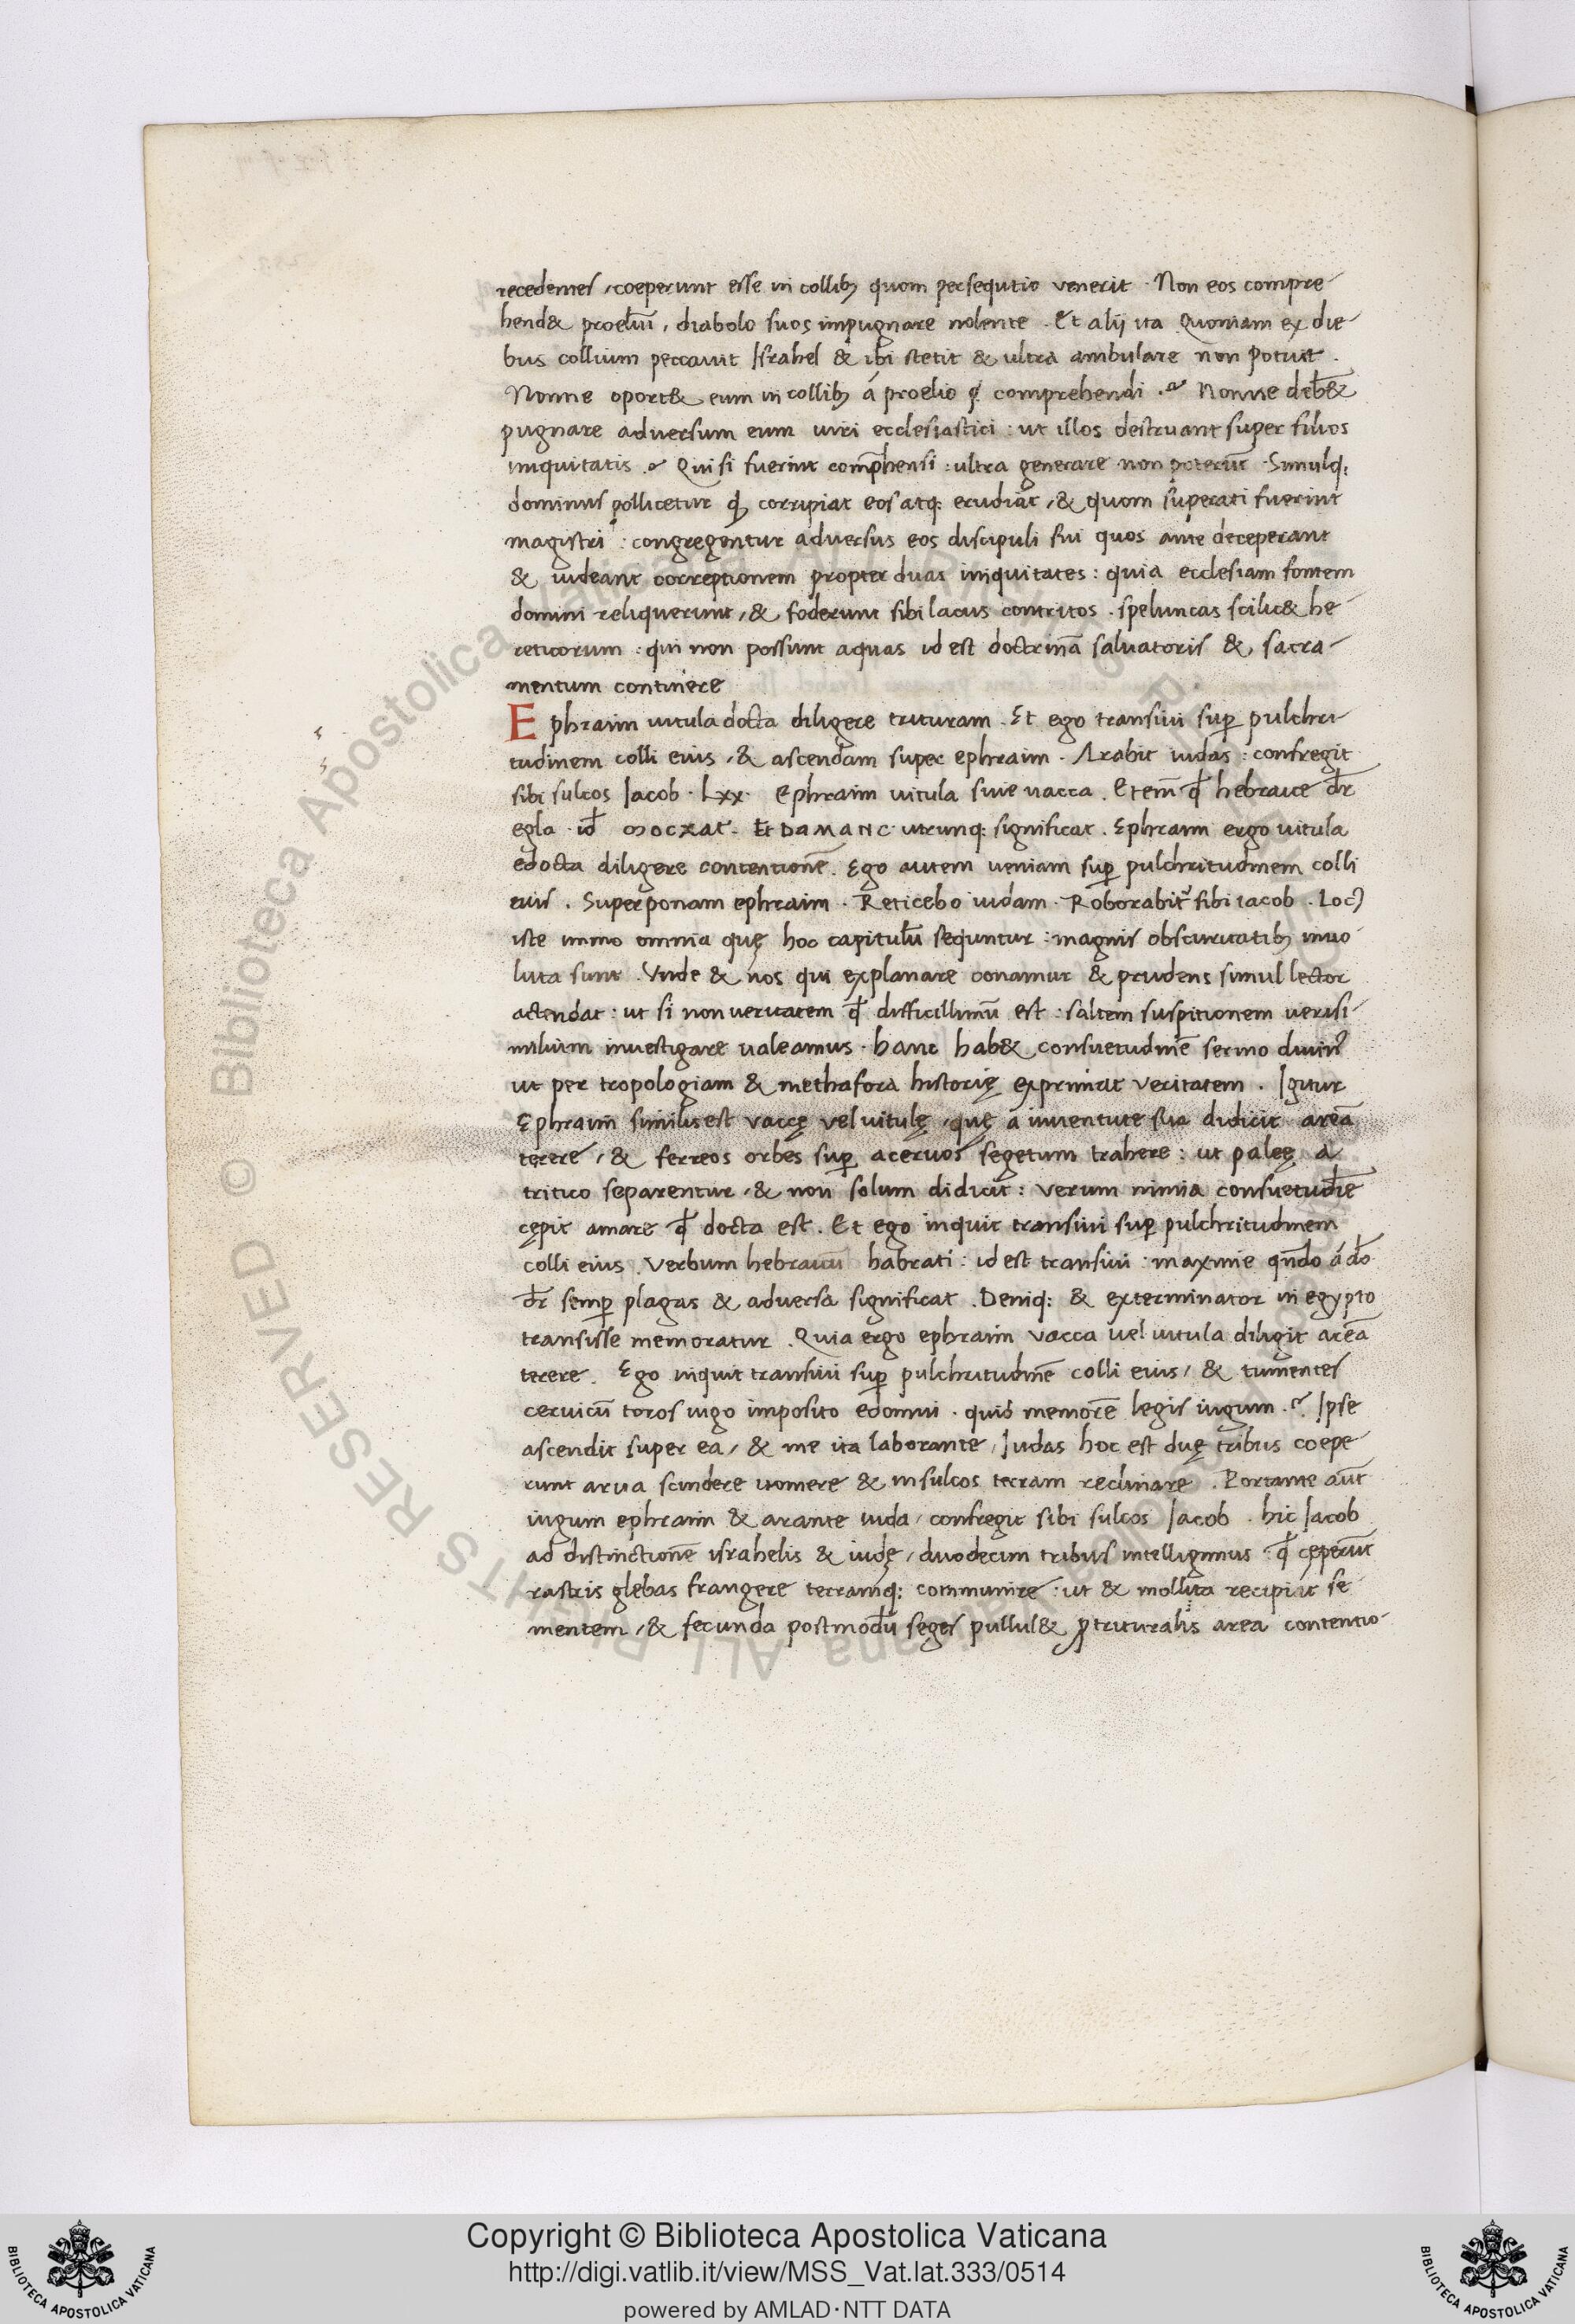 recedentes, coeperunt esse in collibꝫ quom persequtio venerit. Non eos compre-
hend& proeliū, diabolo suos impugnare nolente. Et alij ita. Quoniam ex die-
bus collium peccauit Israhel & ibi stetit & ultra ambulare non potuit.
Nonne oport& eum in collibꝫ á proelio comprehendi. Nonne deb&
pugnare adversum eum uiri ecclesiastici: ut illos destruant super filios
iniquitatis. Qui si fuerint comp̄hensi: ultra generare non poterūt. Simulq:
dominus pollicetur ꝙ corripiat eos atq: erudiat, & quom superati fuerint
magistri: congregentur adversus eos discipuli sui quos ante deceperant
& uideant correptionem propter duas iniquitates: quia ecclesiam fontem
domini reliquerunt, & foderunt sibi lacus contritos. speluncas scilic& he-
reticorum: qui non possunt aquas id est doctrinā saluatoris & sacra-
mentum continere
Ephraim uitula docta diligere trituram. Et ego transiui suꝑ pulchri-
tudinem colli eius, & ascendam super ephraim. Arabit iudas: confregit
sibi sulcos Iacob. Lxx. Ephraim uitula siue uacca. Etem̄ qđ hebraice dr̄
egla. iđ ᲛOCXAT. Et DAMANC utrunq: significat. Ephraim ergo uitula
edocta diligere contentionē. Ego autem ueniam suꝑ pulchritudinem colli
eius. Superponam ephraim. Reticebo iudam. Roborabit᷑ sibi iacob. Locꝯ
iste immo omnia quę hoc capitulū sequntur: magnis obscuritatibꝫ inuo-
luta sunt. Vnde & nos qui explanare conamur & prudens simul lector
actendat: ut si non ueritatem qđ difficillimū est: saltem suspitionem uerisi-
milium inuestigare ualeamus. hanc hab& consuetudinē sermo diuinꝰ
ut per tropologiam & methaforā historię exprimat veritatem. Igitur
Ephraim similis est vaccę vel uitulę, quę a iuuentute sua didicit areā
terere, & ferreos orbes suꝑ aceruos segetum trahere: ut paleę a
tritico separentur, & non solum didicit: verum nimia consuetudīe
cępit amare qđ docta est. Et ego inquit transiui suꝑ pulchritudinem
colli eius. Verbum hebraicū habrati: id est transiui: maxime qn̄do á đo
dr̄ semꝑ plagas & adversa significat. Deniq: & exterminator in egypto
transisse memoratur. Quia ergo ephraim vacca uel uitula diligit areā
terere. Ego inquit transiui suꝑ pulchritudinē colli eius, & tumentes
ceruicū toros iugo imposito edomui. quid memorē legis iugum. Ipse
ascendit super eā, & me ita laborante, Iudas hoc est duę tribus coepe
runt arua scindere uomere & in sulcos terram reclinare. Portante aūt
iugum ephraim & arante iuda, confregit sibi sulcos Iacob. hic Iacob
ad distinctionē israhelis & iudę, duodecim tribus intelligimus: qđ cęperūt
rastris glebas frangere terramq: communire: ut & mollita recipiat se
mentem, & fecunda postmodū seges pullul& ꝓ trituralis area contentio-
Copyright © Biblioteca Apostolica Vaticana
http://digi.vatlib.it/view/MSS_Vat.lat.333/0514
powered by AMLAD·NTT DATA